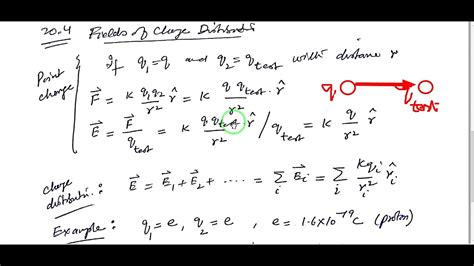 20.4 Fields of Charge Distributions
Point charge
If q₁ = q and q₂ = q_test with distance r
F⃗ = K q₁q₂/r² r̂ = K q q_test/r² · r̂
E⃗ = F⃗/q_test = K q q_test/r² r̂ / q_test = K q/r² r̂
q q_test
charge distributi: E⃗ = E⃗₁ + E⃗₂ + ⋯ = ∑ᵢ E⃗ᵢ = ∑ᵢ Kqᵢ/rᵢ² r̂ᵢ
Example: q₁ = e, q₂ = e, e = 1.6×10⁻¹⁹C (proton)